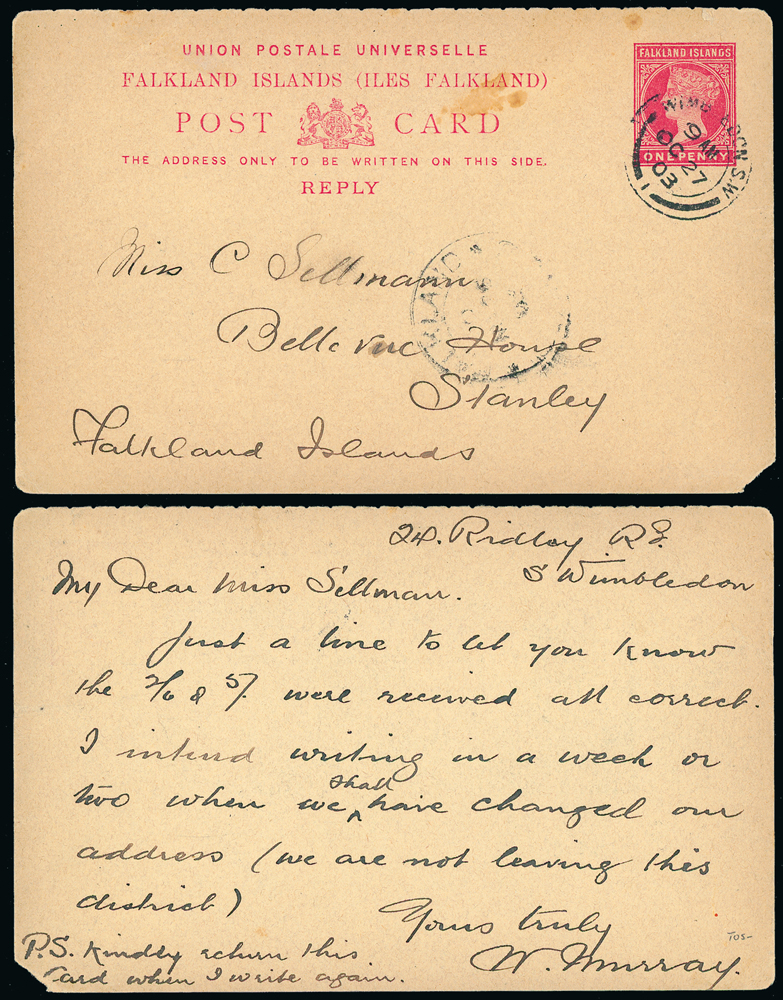 UNION POSTALE UNIVERSELLE
FALKLAND ISLANDS (ILES FALKLAND)
POST CARD
THE ADDRESS ONLY TO BE WRITTEN ON THIS SIDE.
REPLY
FALKLAND ISLANDS
ONE PENNY
S.W
9 AM
OC 27
03
1
Miss C Sellmann
Bellevue House
Stanley
Falkland Islands
FALKLAND
24. Ridley Rd.
S Wimbledon
My Dear Miss Sellman.
Just a line to let you know
the 2/6 & 5/. were received all correct.
I intend writing in a week or
two when we shall have changed our
address (we are not leaving this
district)
Yours truly
W. Murray.
P.S. Kindly return this
card when I write again.
TOS-